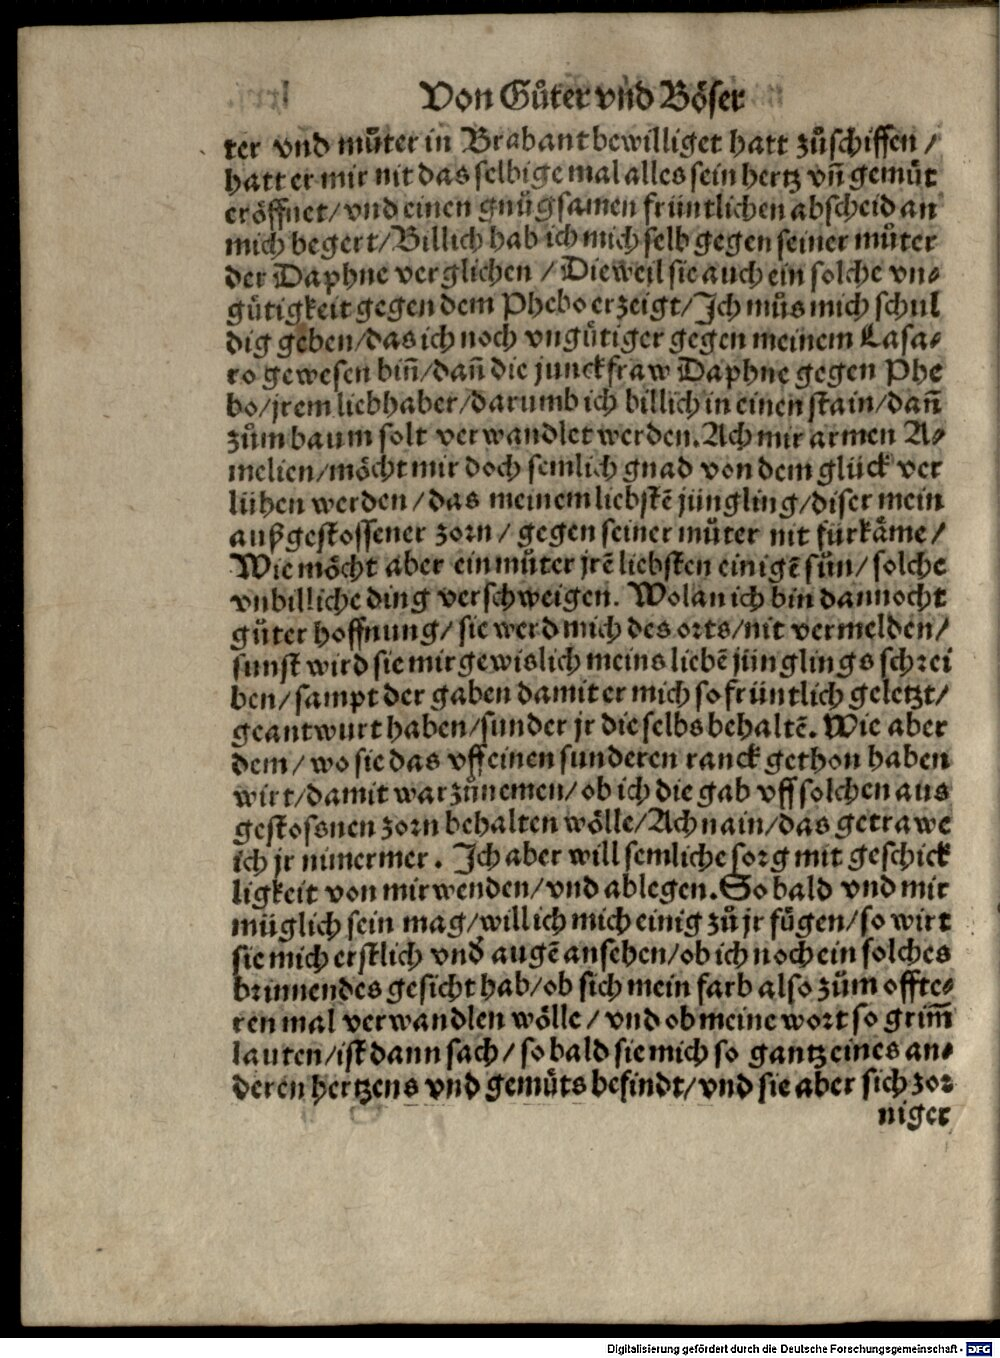 Von Gůter vnd Bőser
ter vnd můter in Brabant bewilliget hatt zůschiffen /
hatt er mir nit das selbige mal alles sein hertz vñ gemůt
eröffnet / vnd einen gnůgsamen früntlichen abscheid an
mich begert / Billich hab ich mich selb gegen seiner můter
der Daphne verglichen / Dieweil sie auch ein solche vn⸗
gütigkeit gegen dem Phebo erzeigt / Ich můs mich schul
dig geben / das ich noch vngütiger gegen meinem Lasa⸗
ro gewesen biñ / dañ die junckfraw Daphne gegen Phe
bo / jrem liebhaber / darumb ich billich in einen stain / dañ
zům baum solt verwandlet werden. Ach mir armen A⸗
melien / möcht mir doch semlich gnad von dem glück ver
lühen werden / das meinem liebstē jüngling / diser mein
außgestossener zorn / gegen seiner můter nit fürkäme /
Wie möcht aber ein můter jrē liebsten einigē sün / solche
vnbilliche ding verschweigen. Wolan ich bin dannocht
gůter hoffnung / sie werd mich des orts / nit vermelden /
sunst wird sie mir gewislich meins liebē jünglings schrei
ben / sampt der gaben damit er mich so früntlich geletzt /
geantwurt haben / sunder jr die selbs behaltē. Wie aber
dem / wo sie das vff einen sunderen ranck gethon haben
wirt / damit war zůnemen / ob ich die gab vff solchen aus
gestossnen zorn behalten wölle / Ach nain / das getrawe
ich jr nimermer. Ich aber will semliche sorg mit geschick
ligkeit von mir wenden / vnd ablegen. So bald vnd mir
müglich sein mag / will ich mich einig zů jr fůgen / so wirt
sie mich erstlich vnd augē ansehen / ob ich noch ein solches
brinnendes gesicht hab / ob sich mein farb also zům offte⸗
ren mal verwandlen wölle / vnd ob meine wort so grim̃
lauten / ist dann sach / so bald sie mich so gantz eines an⸗
deren hertzens vnd gemůts befindt / vnd sie aber sich zor
niger
Digitalisierung gefördert durch die Deutsche Forschungsgemeinschaft - DFG